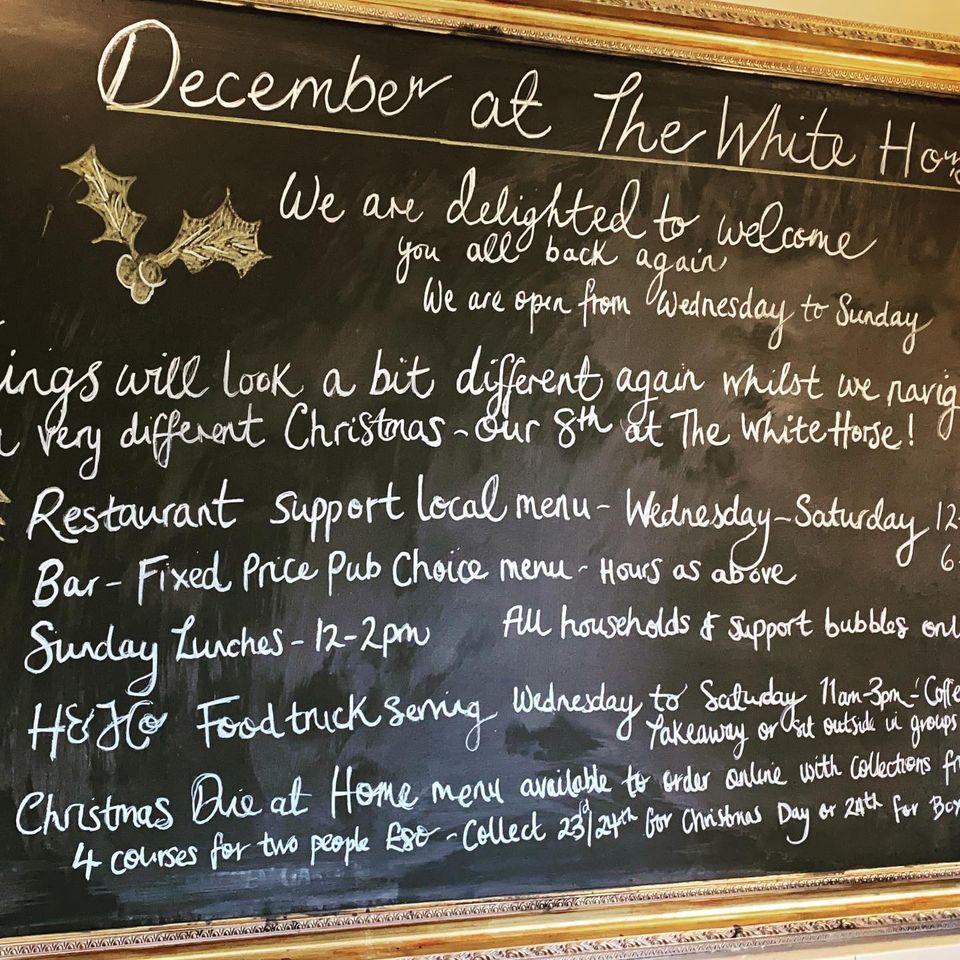 December at The White Hors
We are delighted to welcome
you all back again
We are open from Wednesday to Sunday
ings will look a bit different again whilst we navig
a very different Christmas ~ our 8th at The White Horse!
Restaurant support local menu - Wednesday - Saturday 12-
6-
Bar - Fixed Price Pub Choice menu - Hours as above
Sunday Lunches - 12-2pm
All households & support bubbles onl
H&J Co Food truck serving Wednesday to Saturday 11am-3pm - Coffe
Takeaway or sit outside in groups
Christmas Dine at Home menu available to order online with collections fr
4 courses for two people £80 - Collect 23rd/24th for Christmas Day or 24th for Box